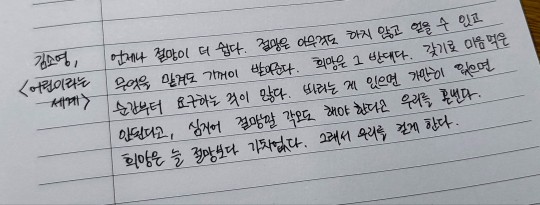 김소영,
<어린이라는
세계>
언제나 절망이 더 쉽다. 절망은 아무것도 하지 않고 얻을 수 있고
무엇을 맡겨도 기꺼이 받아준다. 희망은 그 반대다. 갖기로 마음먹은
순간부터 요구하는 것이 많다. 바라는 게 있으면 가만히 있으면
안된다고, 심지어 절망할 각오도 해야 한다고 우리를 혼낸다.
희망은 늘 절망보다 가차없다. 그래서 우리를 걷게 한다.